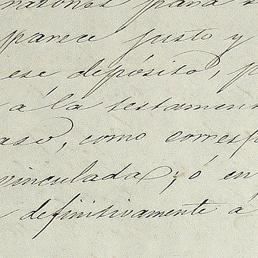 razones para s
parece justo y
ese depósito, p
á la testamen
aso, como corresp
vinculada; ó en
definitivamente á